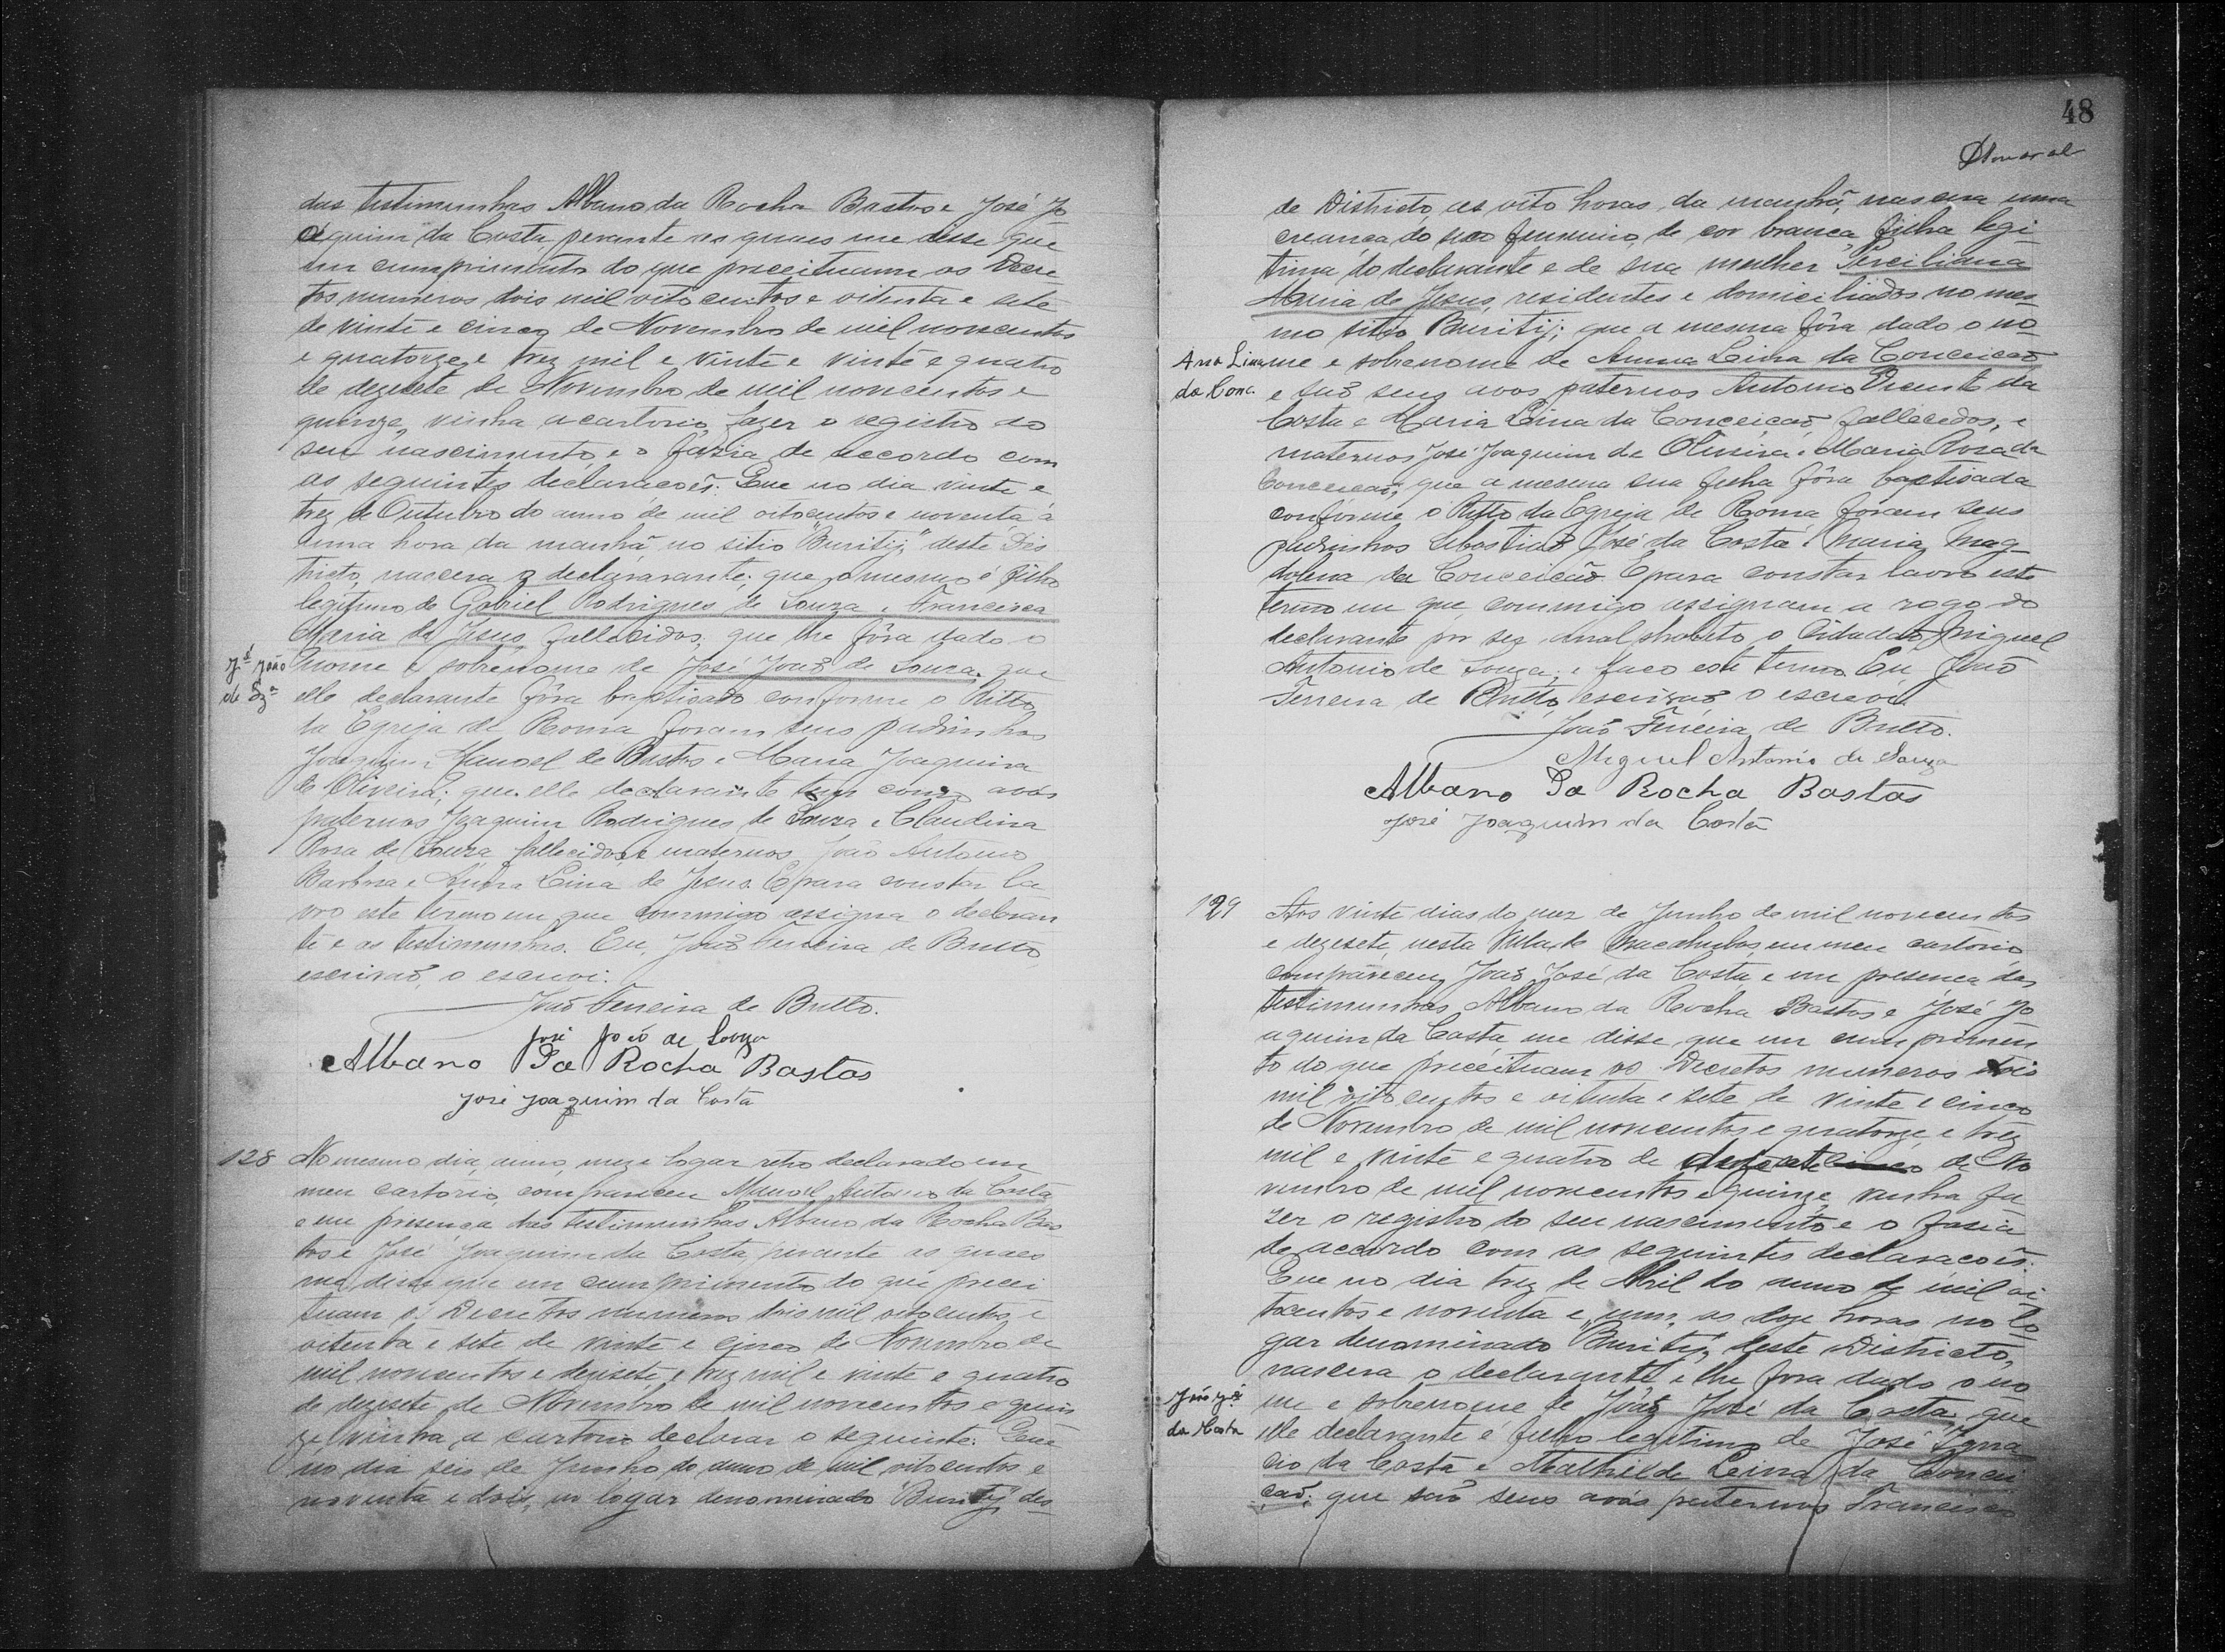 das testimunhas Albano da Rocha Bastos e José Jo
aquim da Costa, perante as quaes me disse que
em cumprimento do que preceituam os Decre
tos numeros dois mil oito centos e oitenta e sete
de vinte e cinco de Novembro de mil novecentos
e quatorze e trez mil e vinte e vinte e quatro
de dezesete de Novembro de mil novecentos e
quinze, vinha a cartorio fazer o registro do
seu nascimento, e o fazia de accordo com
as seguintes declaracoẽs. Que no dia vinte e
trez de Outubro do anno de mil oitocentos e noventa á
uma hora da manhã, no sitio "Buritij," deste Dis
tricto, nascera o declararante; que o mesmo é filho
legitimo de Gabriel Rodrigues de Souza e Francisca
Maria de Jesus, fallecidos, que lhe fôra dado o
Jé João
de Sza
nome e sobrenome de José João de Souza, que
elle declarante fôra baptisado conforme o Ritto
da Egreja de Roma foram seus padrinhos
Joaquim Manoel de Bastos e Maria Joaquina
de Oliveira; que elle declarante tem como avós
paternos Joaquim Rodrigues de Souza e Claudina
Rosa de Souza fallecidos e maternos João Antonio
Barbosa e Lina de Jesus. E para constar la
vro este termo em que commigo assigna o declaran
te e as testimunhas. Eu, João Ferreira de Britto
escrivaõ, o escrevi.
João Ferreira de Britto.
José João de Souza
Albano Da Rocha Bastos
José Joaquim da Costa
128 No mesmo dia, anno, mez e logar retro declarado em
meu cartorio, compareceu Manoel Antonio da Costa
e em presença das testimunhas Albano da Rocha Bas
tos e José Joaquim da Costa, perante as quaes
me disse que em cumprimento do que precei
tuam os Decretos numeros dois mil oitocentos e
oitenta e sete de vinte e cinco de Novembro de
mil novecentos e dezisete, e trez mil e vinte e quatro
de dezesete de Novembro de mil novecentos e quin
ze, vinha a cartorio declarar o seguinte: Que
no dia seis de Junho do anno de mil oitocentos e
noventa e dois, no logar denominado "Buritij" des
48
Amaral
de Districto, as oito horas da manhã, nascera uma
creança do sexo femenino, de cor branca, filha legi
tima do declarante e de sua mulher Perciliana
Maria de Jesus, residentes e domiciliados no mes
mo sitio Buritij; que a mesma fôra dado o no
Ana Lina
da Conc.
me e sobrenome de Anna Lina da Conceicaõ
e saõ seus avos paternos Antonio Vicente da
Costa e Maria Lina da Conceicaõ, fallecidos, e
maternos José Joaquim de Oliveira e Maria Rosa da
Conceicaõ, que a mesma sua filha fôra baptisada
conforme o Ritto da Egreja de Roma foram seus
padrinhos Sebastiaõ José da Costa e Maria Mag
dalena da Conceicão. E para constar lavro este
termo em que commigo assignam a rogo do
declarante por ser analphabeto o Cidadaõ Miguel
Antonio de Souza; e faco este termo. Eu, João
Ferreira de Britto, escrivaõ o escrevi.
João Ferreira de Britto.
Miguel Antonio de Souza
Albano Da Rocha Bastos
José Joaquim da Costa
129 Aos vinte dias do mez de Junho de mil novecentos
e dezesete, nesta Villa de Macahubas, em meu cartorio,
compareceu João José da Costa, e em presenca das
testimunhas Albano da Rocha Bastos e José Jo
aquim da Costa, me disse que em cumprimen
to do que preceituam os Decretos numeros dois
mil oito centos e oitenta e sete de vinte e cinco
de Novembro de mil novecentos e quatorze, e trez
mil e vinte e quatro de dezesete de No
vembro de mil novecentos e quinze, vinha fa
zer o registro do seu nascimento e o fasia
de accordo com as seguintes declaracoẽs.
Que no dia trez de Abril do anno de mil oi
tocentos e noventa e um, as doze horas no lo
gar denominado "Buritij," deste Districto,
nascera o declarante e lhe fora dado o no
João Jé
da Costa
me e sobrenome de João José da Costa, que
elle declarante é filho legitimo de José Igna
cio da Costa e Mathilde Leina da Concei
çaõ; que saõ seus avós paternos Francisco